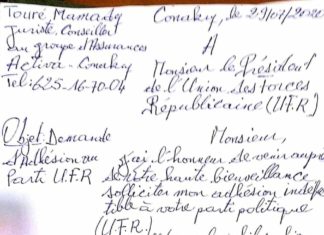 Touré Mamady
Juriste, Conseiller
au groupe d'Assurances
Activa - Conakry
Tel: 625-16-70-04
Conakry, le 29/07/2022
A
Monsieur le Président
de l'Union des Forces
Républicaine (U.F.R)
Objet: Demande
d'Adhésion au
Parti U.F.R
Monsieur,
J'ai l'honneur de venir auprè
de votre haute bienveillance
solliciter mon adhésion indéfec
tible à votre parti politique
(U.F.R)